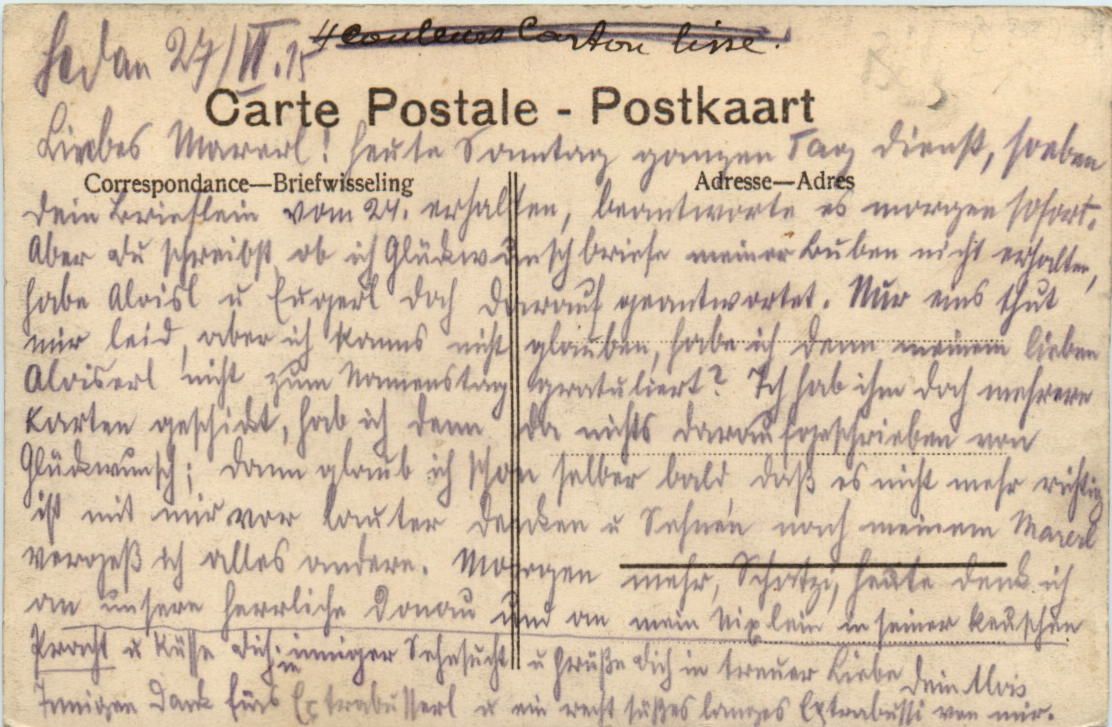 4 couleurs Carton lisse.
Sedan 27/VI.15
Carte Postale - Postkaart
Liebes Mararl! Heute Sonntag ganzen Tag Dienst, soeben
Correspondance—Briefwisseling Adresse—Adres
Dein Brieflein vom 24. erhalten, beantworte es morgen sofort.
Aber du schreibst, ob ich Glückwunschbriefe meiner Buben nicht erhalten,
habe Aloisl u Eugerl doch darauf geantwortet. Nur eins thut
mir leid, aber ich kanns nicht glauben, habe ich denn meinem lieben
Aloiserl nicht zum Namenstag gratuliert? Ich hab ihm doch mehrere
Karten geschickt, hab ich denn da nichts daraufgeschrieben von
Glückwunsch; dann glaub ich schon selber bald, daß es nicht mehr richtig
ist mit mir vor lauter Denken u Sehnen nach meinem Mararl
vergeß ich alles andere. Morgen mehr, Schatzi, heute denk ich
an unsere herrliche Donau und an mein Nixlein in seiner keuschen
Pracht u küsse dich in inniger Sehnsucht u grüße dich in treuer Liebe dein Alois
Innigen Dank fürs Extrabusserl u ein recht süßes langes Extrabussi von mir.